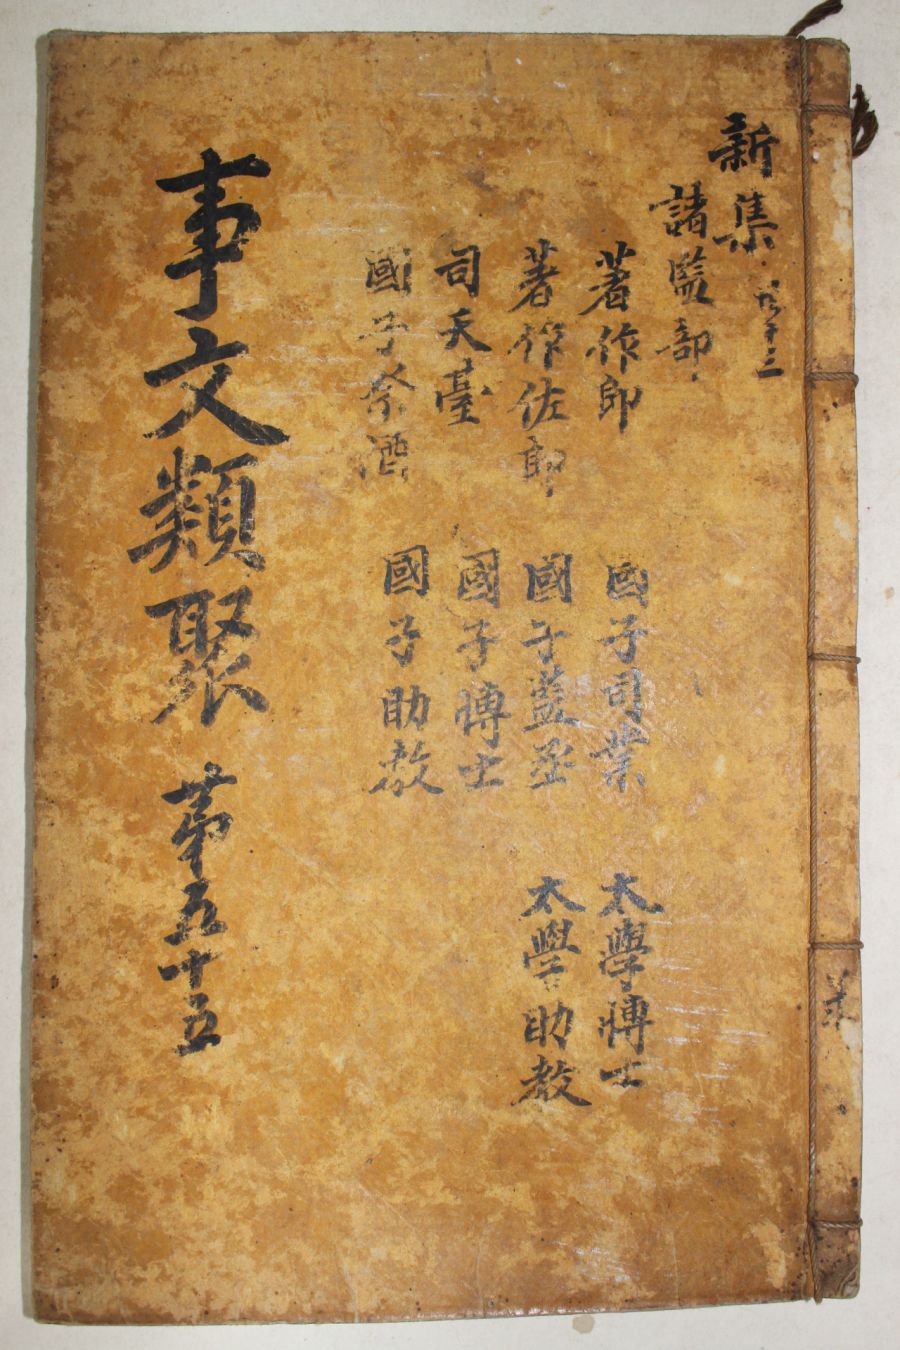 新集
卅三
諸監部
著作郎
著作佐郎
司天臺
國子祭酒
國子司業
國子監丞
國子博士
國子助敎
太學博士
太學助敎
事文類聚 苐五十五